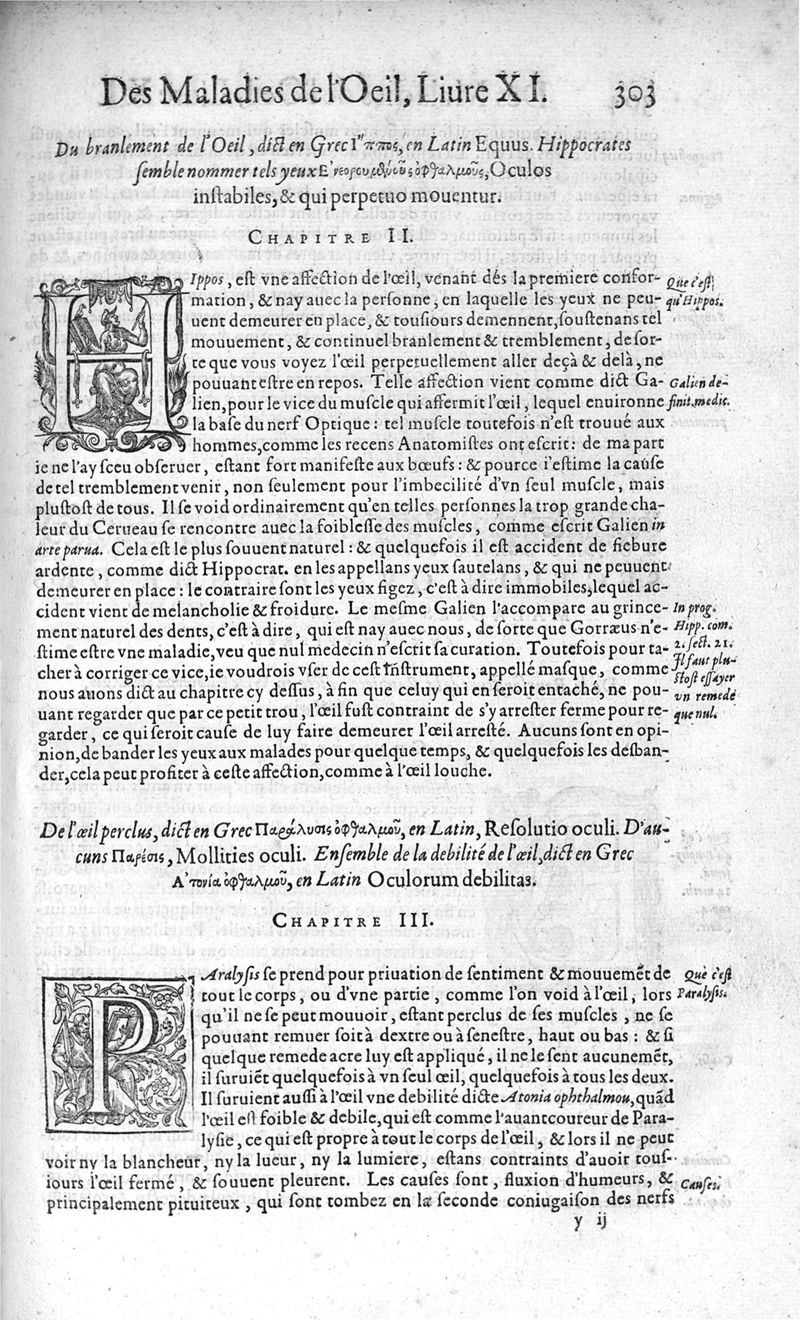 Des Maladies de l'Oeil, Liure XI. 303
Du branlement de l'Oeil, dict en Grec Ἵππος, en Latin Equus. Hippocrates
ſemble nommer tels yeux ὀφθαλμοῦς, Oculos
inſtabiles, & qui perpetuo mouentur.
CHAPITRE II.
HIppos, eſt vne affection de l'œil, venant dés la premiere confor-
mation, & nay auec la perſonne, en laquelle les yeux ne peu-
uent demeurer en place, & touſiours demennent, ſouſtenans tel
mouuement, & continuel branlement & tremblement, de ſor-
te que vous voyez l'œil perpetuellement aller deçà & delà, ne
pouuant eſtre en repos. Telle affection vient comme dict Ga-
lien, pour le vice du muſcle qui affermit l'œil, lequel enuironne
la baſe du nerf Optique : tel muſcle toutefois n'eſt trouué aux
hommes, comme les recens Anatomiſtes ont eſcrit: de ma part
ie ne l'ay ſceu obſeruer, eſtant fort manifeſte aux bœufs : & pource i'eſtime la cauſe
de tel tremblement venir, non ſeulement pour l'imbecilité d'vn ſeul muſcle, mais
pluſtoſt de tous. Il ſe void ordinairement qu'en telles perſonnes la trop grande cha-
leur du Cerueau ſe rencontre auec la foibleſſe des muſcles, comme eſcrit Galien in
arte parua. Cela eſt le plus ſouuent naturel : & quelquefois il eſt accident de fiebure
ardente, comme dict Hippocrat. en les appellans yeux ſautelans, & qui ne peuuent
demeurer en place : le contraire ſont les yeux figez, c'eſt à dire immobiles, lequel ac-
cident vient de melancholie & froidure. Le meſme Galien l'accompare au grince-
ment naturel des dents, c'eſt à dire, qui eſt nay auec nous, de ſorte que Gorræus n'e-
ſtime eſtre vne maladie, veu que nul medecin n'eſcrit ſa curation. Toutefois pour ta-
cher à corriger ce vice, ie voudrois vſer de ceſt Inſtrument, appellé maſque, comme
nous auons dict au chapitre cy deſſus, à fin que celuy qui en ſeroit entaché, ne pou-
uant regarder que par ce petit trou, l'œil fuſt contraint de s'y arreſter ferme pour re-
garder, ce qui ſeroit cauſe de luy faire demeurer l'œil arreſté. Aucuns ſont en opi-
nion, de bander les yeux aux malades pour quelque temps, & quelquefois les desban-
der, cela peut profiter à ceſte affection, comme à l'œil louche.
Que c'eſt
qu'Hippos.
Galien de-
finit. medic.
In prog.
Hipp. com.
2. ſect. 21.
Il faut plu-
ſtoſt eſſayer
vn remede
que nul.
De l'œil perclus, dict en Grec Παράλυσις ὀφθαλμοῦ, en Latin, Reſolutio oculi. D'au-
cuns Παρέσις, Mollities oculi. Enſemble de la debilité de l'œil, dict en Grec
Ἀτονία ὀφθαλμοῦ, en Latin Oculorum debilitas.
CHAPITRE III.
PAralyſis ſe prend pour priuation de ſentiment & mouuemēt de
tout le corps, ou d'vne partie, comme l'on void à l'œil, lors
qu'il ne ſe peut mouuoir, eſtant perclus de ſes muſcles, ne ſe
pouuant remuer ſoit à dextre ou à ſeneſtre, haut ou bas : & ſi
quelque remede acre luy eſt appliqué, il ne le ſent aucunemēt,
il ſuruiēt quelquefois à vn ſeul œil, quelquefois à tous les deux.
Il ſuruient auſſi à l'œil vne debilité dicte Atonia ophthalmou, quād
l'œil eſt foible & debile, qui eſt comme l'auantcoureur de Para-
lyſie, ce qui eſt propre à tout le corps de l'œil, & lors il ne peut
voir ny la blancheur, ny la lueur, ny la lumiere, eſtans contraints d'auoir touſ-
iours l'œil fermé, & ſouuent pleurent. Les cauſes ſont, fluxion d'humeurs, &
principalement pituiteux, qui ſont tombez en la ſeconde coniugaiſon des nerfs
Que c'eſt
Paralyſis.
Cauſes.
y ij